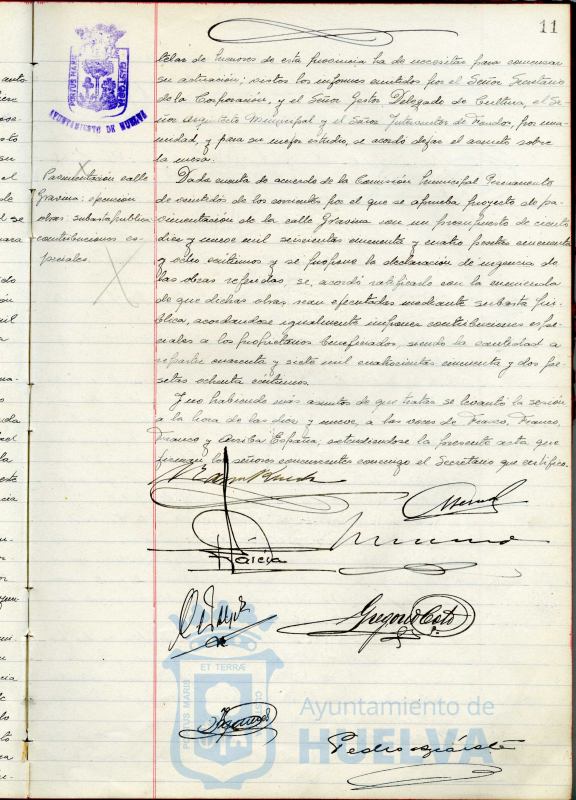 11
PORTUS MARIS
CUSTODIA
AYUNTAMIENTO DE HUELVA
telar de menores de esta provincia ha de necesitar para comenzar
su actuación; vistos los informes emitidos por el Señor Secretario
de la Corporación, y el Señor Gestor Delegado de Cultura, el Se-
ñor Arquitecto Municipal y el Señor Interventor de Fondos, por una-
nimidad, y para su mejor estudio, se acordó dejar el asunto sobre
la mesa.
Pavimentación calle
Gravina: ejecución
obras subasta publica
contribuciones es-
peciales.
Dada cuenta de acuerdo de la Comisión Municipal Permanente
de veintidos de los corrientes por el que se aprueba proyecto de pa-
vimentación de la calle Gravina con un presupuesto de ciento
diez y nueve mil seiscientas cincuenta y cuatro pesetas cincuenta
y ocho centimos y se propone la declaración de urgencia de
las obras referidas, se acordó ratificarlo con la enmienda
de que dichas obras sean ejecutadas mediante subasta pú-
blica, acordandose igualmente imponer contribuciones espe-
ciales a los propietarios beneficiados, siendo la cantidad a
repartir cuarenta y siete mil cuatrocientas cincuenta y dos pe-
setas ochenta centimos.
Y no habiendo más asuntos de que tratar se levantó la sesión
a la hora de las diez y nueve, a las voces de Franco, Franco,
Franco y Arriba España, extendiendose la presente acta que
firman los señores concurrentes conmigo el Secretario que certifico.
García
Gregorio Coto
Pedro
PORTUS MARIS
ET TERRÆ
CUSTODIA
Ayuntamiento de
HUELVA